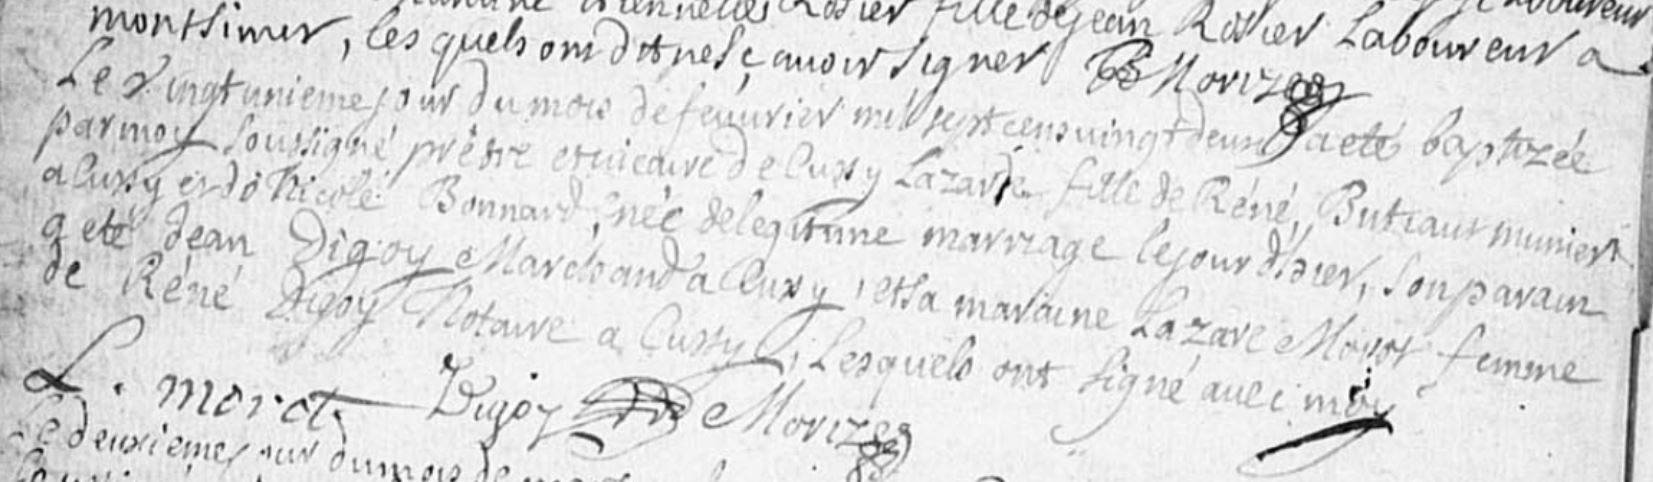 fille de Jean Rosier Laboureur
montsimer, lesquels ont dit ne sç avoir signer B Morizes
Le vingt unieme jour du mois de feuvrier mil sept cens vingt deux a eté baptizée
par moy soussigné prêtre et vicaire de Cussy Lazare fille de Réné, Butraut munier
a Cussy et dô Nicole Bonnard, née de legitime marriage le jour d'hier, son parain
a eté Jean Digoy Marchand a Cussy, et sa maraine Lazare Morot femme
de Réné Digoy Notaire a Cussy, Lesquels ont signé avec moy
L. morot Digoy Morizes
Le deuxieme jour du mois de mars